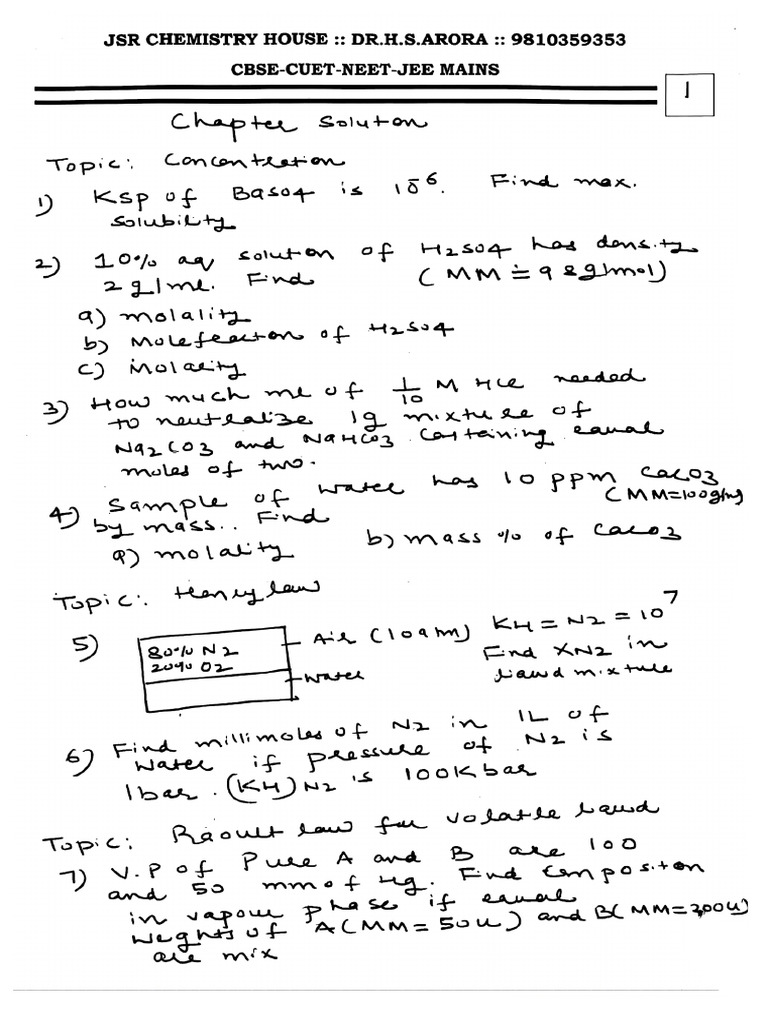 JSR CHEMISTRY HOUSE :: DR.H.S.ARORA :: 9810359353
CBSE-CUET-NEET-JEE MAINS
1
Chapter Solution
Topic: Concentration
1) Ksp of BaSO4 is 10^-6. Find max.
solubility
2) 10% aq solution of H2SO4 has density
2 g/ml. Find (MM = 98g/mol)
a) molality
b) Molefraction of H2SO4
c) Molarity
3) How much ml of 1/10 M HCl needed
to neutralize 1g mixture of
Na2CO3 and NaHCO3 containing equal
moles of two.
4) Sample of water has 10 ppm CaCO3
by mass.. Find (MM=100g/mg)
a) molality b) mass % of CaCO3
Topic: Henry law
5) 80% N2 Air (10atm) KH = N2 = 10^7
20% O2 Find XN2 in
water liqud mixture
6) Find millimoles of N2 in 1L of
water if pressure of N2 is
1bar. (KH)N2 is 100Kbar
Topic: Raoult law for volatle liqud
7) V.P of Pure A and B are 100
and 50 mm of Hg. Find Compositon
in vapour phase if equal
weghts of A(MM=50u) and B(MM=200u)
are mix